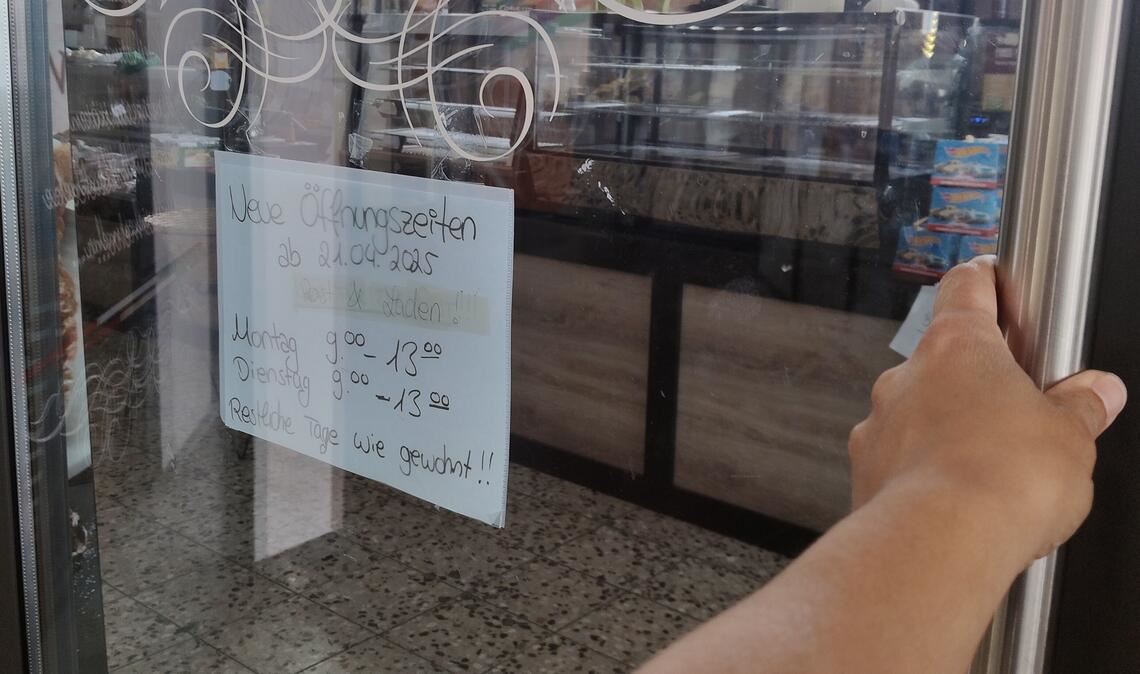 Neue Öffnungszeiten
ab 21.04.2025
Post & Laden !!!
Montag 9.00 - 13 00
Dienstag 9.00 - 13 00
Restliche Tage wie gewohnt !!